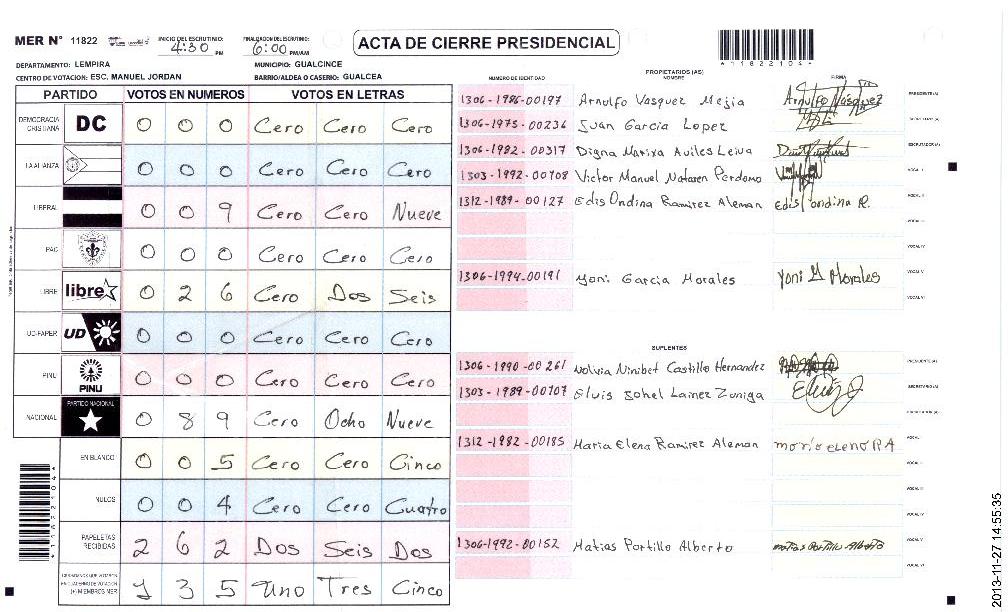 MER N° 11822
INICIO DEL ESCRUTINIO:
4:30 PM
FINALIZACION DEL ESCRUTINIO:
6:00 PM/AM
ACTA DE CIERRE PRESIDENCIAL
* 1 1 8 2 2 1 0 4 *
DEPARTAMENTO: LEMPIRA
MUNICIPIO: GUALCINCE
CENTRO DE VOTACION: ESC. MANUEL JORDAN
BARRIO/ALDEA O CASERIO: GUALCEA
PARTIDO VOTOS EN NUMEROS VOTOS EN LETRAS
DEMOCRACIA CRISTIANA DC 0 0 0 Cero Cero Cero
LA ALIANZA 0 0 0 Cero Cero Cero
LIBERAL 0 0 9 Cero Cero Nueve
PAC 0 0 0 Cero Cero Cero
LIBRE libre 0 2 6 Cero Dos Seis
UD-FAPER UD 0 0 0 Cero Cero Cero
PINU PINU 0 0 0 Cero Cero Cero
NACIONAL PARTIDO NACIONAL 0 8 9 Cero Ocho Nueve
EN BLANCO 0 0 5 Cero Cero Cinco
NULOS 0 0 4 Cero Cero Cuatro
PAPELETAS RECIBIDAS 2 6 2 Dos Seis Dos
CIUDADANOS QUE VOTARON EN CUADERNO DE VOTACION (+) MIEMBROS MER 1 3 5 Uno Tres Cinco
* 1 1 8 2 2 1 0 4 *
NUMERO DE IDENTIDAD
PROPIETARIOS (AS)
NOMBRE
FIRMA
1306-1986-00197 Arnulfo Vasquez Mejia Arnulfo Vásquez PRESIDENTE (A)
1306-1975-00236 Juan Garcia Lopez SECRETARIO (A)
1306-1982-00317 Digna Marixa Aviles Leiva ESCRUTADOR (A)
1303-1992-00708 Victor Manuel Nataren Perdomo VOCAL I
1312-1989-00127 Edis Ondina Ramirez Aleman Edis ondina R. VOCAL II
VOCAL III
VOCAL IV
1306-1994-00191 Yoni Garcia Morales Yoni G Morales VOCAL V
VOCAL VI
SUPLENTES
1306-1990-00261 Castillo Hernandez PRESIDENTE (A)
1303-1989-00707 Elvis Lainez Zuniga SECRETARIO (A)
ESCRUTADOR (A)
1312-1982-00185 Maria Elena Ramirez Aleman maria eleno R A VOCAL I
VOCAL II
VOCAL III
VOCAL IV
1306-1992-00152 Matias Portillo Alberto matias Portillo Alberto VOCAL V
VOCAL VI
2013-11-27 14:55:35